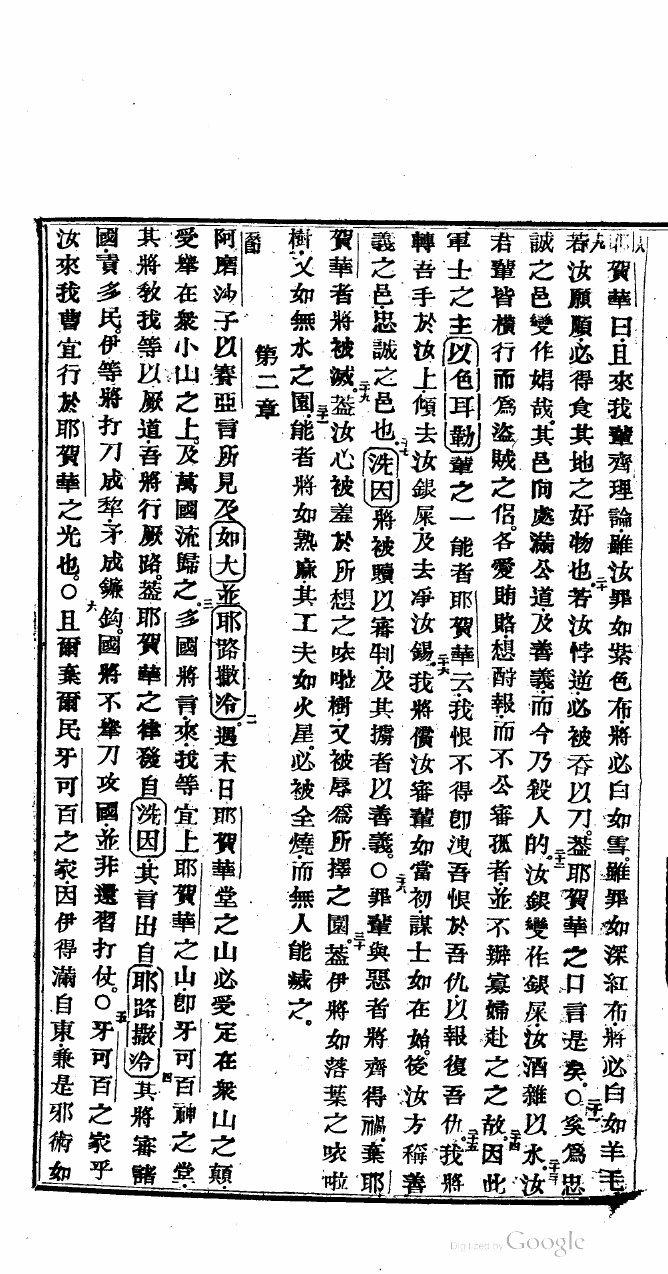 耶賀華曰且來我輩齊理論雖汝罪如紫色布將必白如雪雖罪如深紅布將必白如羊毛
若汝願順必得食其地之好物也若汝悖逆必被吞以刀葢耶賀華之口言是矣○奚爲忠
誠之邑變作娼哉其邑向處滿公道及善義而今乃殺人的汝銀變作銀屎汝酒雜以水汝
君輩皆橫行而爲盜賊之侶各愛賄賂想酧報而不公審孤者並不辦寡婦赴之之故因此
軍士之主以色耳勒輩之一能者耶賀華云我恨不得卽洩吾恨於吾仇以報復吾仇我將
轉吾手於汝上傾去汝銀屎及去凈汝錫我將償汝審輩如當初謀士如在始後汝方稱善
義之邑忠誠之邑也洗因將被贖以審判及其擄者以善義○罪輩與惡者將齊得禍棄耶
賀華者將被滅葢汝心被羞於所想之㕵啦樹又被辱爲所擇之園葢伊將如落葉之㕵啦
樹又如無水之園能者將如熟麻其工夫如火星必被全燒而無人能滅之
第二章
節
阿磨沙子以賽亞言所見及如大並耶路撒冷遇末日耶賀華堂之山必受定在衆山之顛
受擧在衆小山之上及萬國流歸之多國將言來我等宜上耶賀華之山卽牙可百神之堂
其將敎我等以厥道吾將行厥路葢耶賀華之律發自洗因其言出自耶路撒冷其將審諸
國責多民伊等將打刀成犂矛成鐮鈎國將不擧刀攻國並非還習打仗○牙可百之家乎
汝來我曹宜行於耶賀華之光也○且爾棄爾民牙可百之家因伊得滿自東兼是邪術如
Digitized by Google